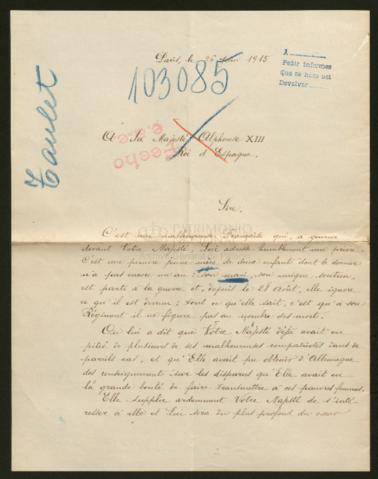 Paris, le 26 Juin 1915
A
Pedir informes
Que se hace así
Devolver
103085
Taulet
A Sa Majesté Alphonse XIII
Roi d'Espagne.
Fecho
Sire,
PATRIMONIO
C'est une malheureuse Française qui, à genoux
devant Votre Majesté, Lui adresse humblement une prière.
C'est une pauvre jeune mère de deux enfants dont le dernier
n'a pas encore un an: son mari, son unique soutien,
est parti à la guerre et, depuis le 28 Août, elle ignore
ce qu'il est devenu; tout ce qu'elle sait, c'est qu'à son
Régiment il ne figure pas au nombre des morts.
On lui a dit que Votre Majesté déjà avait eu
pitié de plusieurs de ses malheureuses compatriotes dans de
pareils cas, et qu'Elle avait pu obtenir d'Allemagne
des renseignements sur les disparus qu'Elle avait eu
la grande bonté de faire transmettre à ces pauvres femmes.
Elle supplie ardemment Votre Majesté de s'inté-
resser à elle et Lui sera du plus profond du cœur